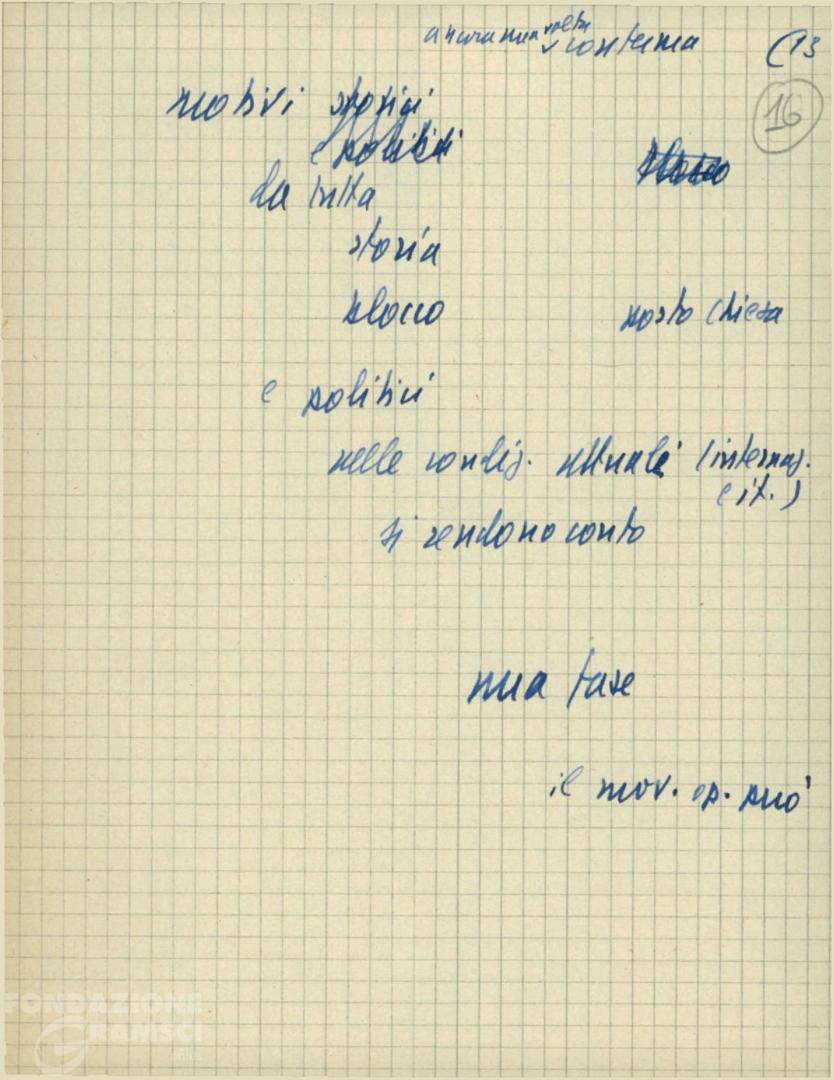 ancora una volta conferma (13
16
motivi storici
e politici
da tutta
storia
blocco posto chiesa
e politici
nelle condiz. attuali (internaz.
e it.)
si rendono conto
una fase
il mov. op. può
FONDAZIONE
GRAMSCI